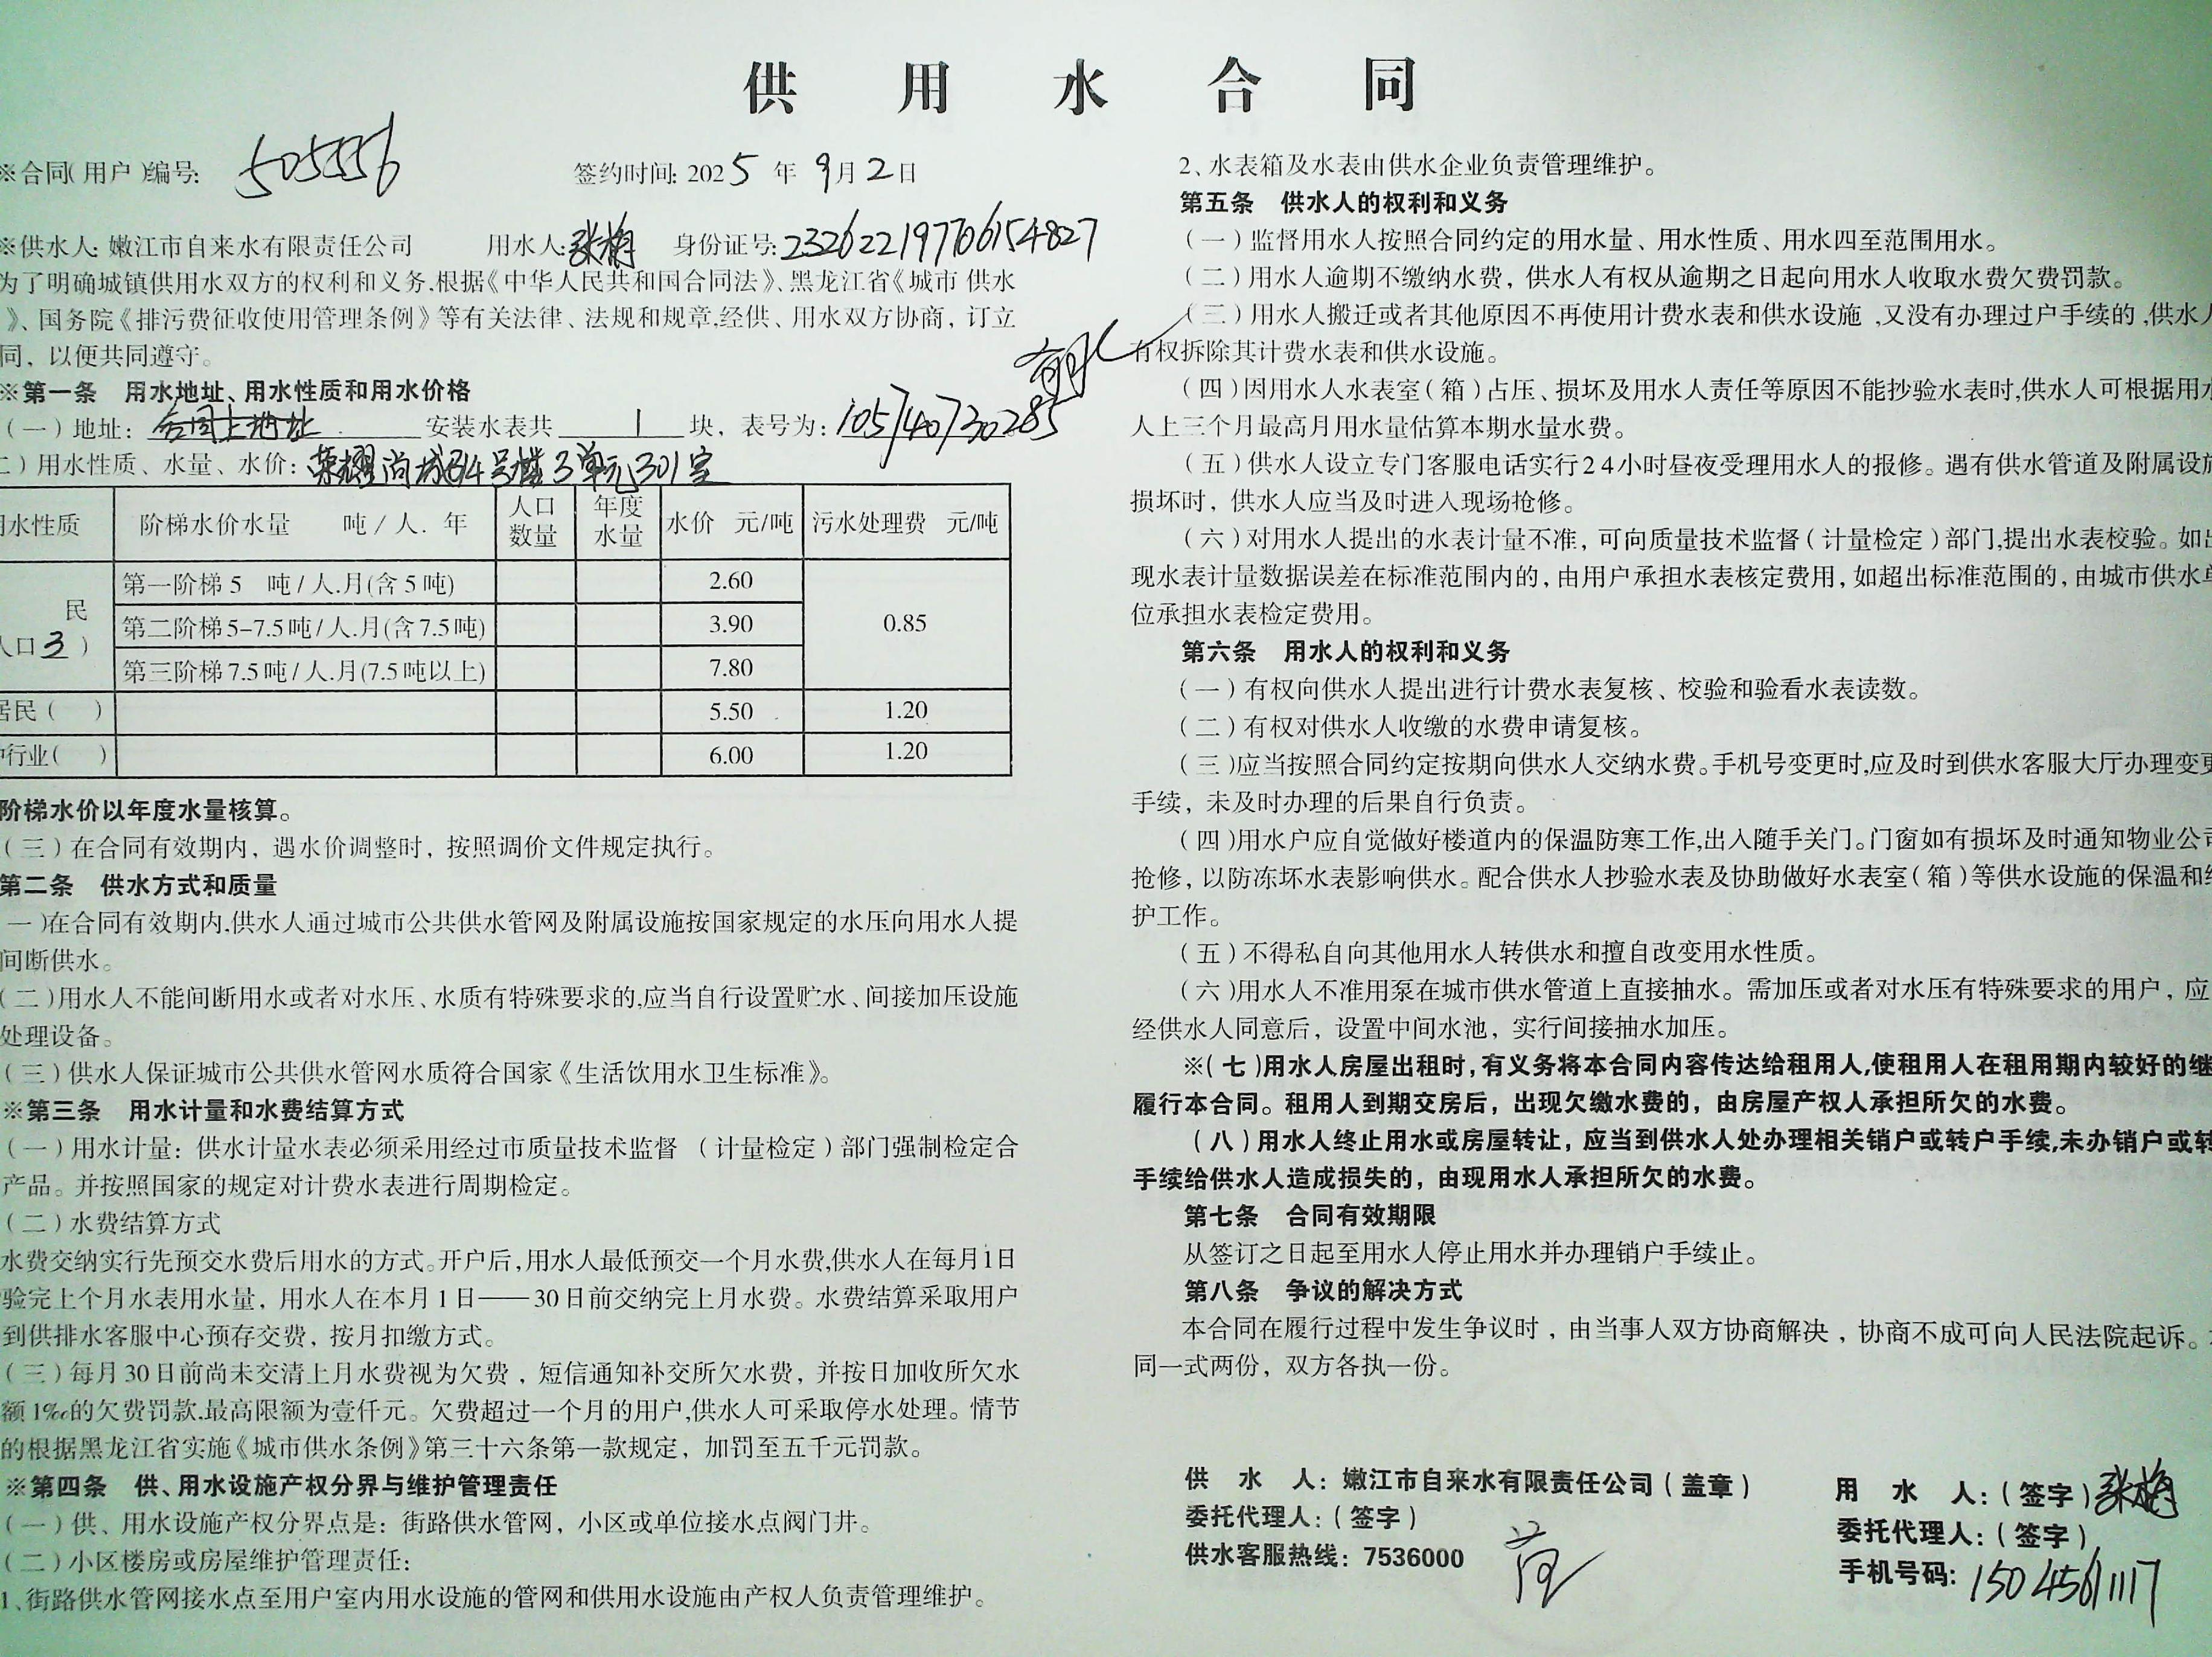 供用水合同
※合同(用户)编号: 505556 签约时间: 2025年9月2日
※供水人: 嫩江市自来水有限责任公司 用水人: 张梅 身份证号:
为了明确城镇供用水双方的权利和义务,根据《中华人民共和国合同法》、黑龙江省《城市 供水
》、国务院《排污费征收使用管理条例》等有关法律、法规和规章,经供、用水双方协商, 订立
同, 以便共同遵守。
※第一条 用水地址、用水性质和用水价格
(一)地址: 合同上地址 安装水表共 1 块, 表号为: 105740730285
二)用水性质、水量、水价: 荣耀尚城34号楼3单元301室
用水性质 阶梯水价水量 吨/人.年 人口数量 年度水量 水价 元/吨 污水处理费 元/吨
民 人口3) 第一阶梯 5 吨/人.月(含5吨) 2.60 0.85
第二阶梯5-7.5吨/人.月(含7.5吨) 3.90
第三阶梯7.5吨/人.月(7.5吨以上) 7.80
居民( ) 5.50 1.20
种行业( ) 6.00 1.20
阶梯水价以年度水量核算。
(三)在合同有效期内, 遇水价调整时, 按照调价文件规定执行。
第二条 供水方式和质量
一)在合同有效期内,供水人通过城市公共供水管网及附属设施按国家规定的水压向用水人提
间断供水。
(二)用水人不能间断用水或者对水压、水质有特殊要求的,应当自行设置贮水、间接加压设施
处理设备。
(三)供水人保证城市公共供水管网水质符合国家《生活饮用水卫生标准》。
※第三条 用水计量和水费结算方式
(一)用水计量: 供水计量水表必须采用经过市质量技术监督 (计量检定)部门强制检定合
产品。并按照国家的规定对计费水表进行周期检定。
(二)水费结算方式
水费交纳实行先预交水费后用水的方式。开户后,用水人最低预交一个月水费,供水人在每月1日
验完上个月水表用水量, 用水人在本月1日——30日前交纳完上月水费。水费结算采取用户
到供排水客服中心预存交费, 按月扣缴方式。
(三)每月30日前尚未交清上月水费视为欠费, 短信通知补交所欠水费, 并按日加收所欠水
额1‰的欠费罚款,最高限额为壹仟元。欠费超过一个月的用户,供水人可采取停水处理。情节
的根据黑龙江省实施《城市供水条例》第三十六条第一款规定, 加罚至五千元罚款。
※第四条 供、用水设施产权分界与维护管理责任
(一)供、用水设施产权分界点是: 街路供水管网, 小区或单位接水点阀门井。
(二)小区楼房或房屋维护管理责任:
1、街路供水管网接水点至用户室内用水设施的管网和供用水设施由产权人负责管理维护。
2、水表箱及水表由供水企业负责管理维护。
第五条 供水人的权利和义务
(一)监督用水人按照合同约定的用水量、用水性质、用水四至范围用水。
(二)用水人逾期不缴纳水费, 供水人有权从逾期之日起向用水人收取水费欠费罚款。
(三)用水人搬迁或者其他原因不再使用计费水表和供水设施,又没有办理过户手续的,供水人
有权拆除其计费水表和供水设施。
(四)因用水人水表室(箱)占压、损坏及用水人责任等原因不能抄验水表时,供水人可根据用水
人上三个月最高月用水量估算本期水量水费。
(五)供水人设立专门客服电话实行24小时昼夜受理用水人的报修。遇有供水管道及附属设施
损坏时, 供水人应当及时进入现场抢修。
(六)对用水人提出的水表计量不准, 可向质量技术监督(计量检定)部门,提出水表校验。如出
现水表计量数据误差在标准范围内的, 由用户承担水表核定费用, 如超出标准范围的, 由城市供水单
位承担水表检定费用。
第六条 用水人的权利和义务
(一)有权向供水人提出进行计费水表复核、校验和验看水表读数。
(二)有权对供水人收缴的水费申请复核。
(三)应当按照合同约定按期向供水人交纳水费。手机号变更时,应及时到供水客服大厅办理变更
手续, 未及时办理的后果自行负责。
(四)用水户应自觉做好楼道内的保温防寒工作,出入随手关门。门窗如有损坏及时通知物业公司
抢修, 以防冻坏水表影响供水。配合供水人抄验水表及协助做好水表室(箱)等供水设施的保温和维
护工作。
(五)不得私自向其他用水人转供水和擅自改变用水性质。
(六)用水人不准用泵在城市供水管道上直接抽水。需加压或者对水压有特殊要求的用户, 应
经供水人同意后, 设置中间水池, 实行间接抽水加压。
※(七)用水人房屋出租时,有义务将本合同内容传达给租用人,使租用人在租用期内较好的继
履行本合同。租用人到期交房后, 出现欠缴水费的, 由房屋产权人承担所欠的水费。
(八)用水人终止用水或房屋转让, 应当到供水人处办理相关销户或转户手续,未办销户或转
手续给供水人造成损失的, 由现用水人承担所欠的水费。
第七条 合同有效期限
从签订之日起至用水人停止用水并办理销户手续止。
第八条 争议的解决方式
本合同在履行过程中发生争议时, 由当事人双方协商解决, 协商不成可向人民法院起诉。
同一式两份, 双方各执一份。
供 水 人: 嫩江市自来水有限责任公司(盖章)
委托代理人:(签字)
供水客服热线: 7536000
用 水 人:(签字) 张梅
委托代理人:(签字)
手机号码: 15045611117